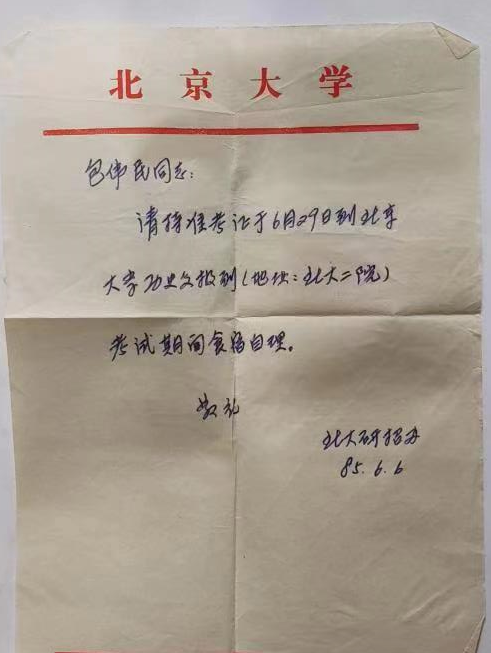 北京大学
包伟民同志：
请持准考证于6月29日到北京
大学历史系报到（地址：北大二院）
考试期间食宿自理。
敬礼
北大研招办
85.6.6